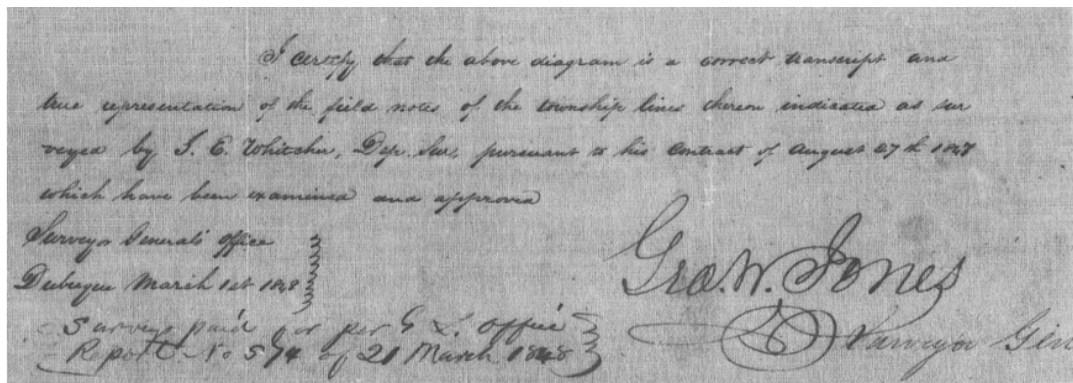 I certify that the above diagram is a correct transcript and
true representation of the field notes of the township lines thereon indicated as sur
veyed by J. E. Whitcher, Dep. Sur, pursuant to his Contract of August 27th 1847
which have been examined and approved
Surveyor General's Office
Dubuque March 1st 1848
Geo. W. Jones
Surveys paid for per G L. Office
Report No 574 of 21 March 1848
Surveyor Gen